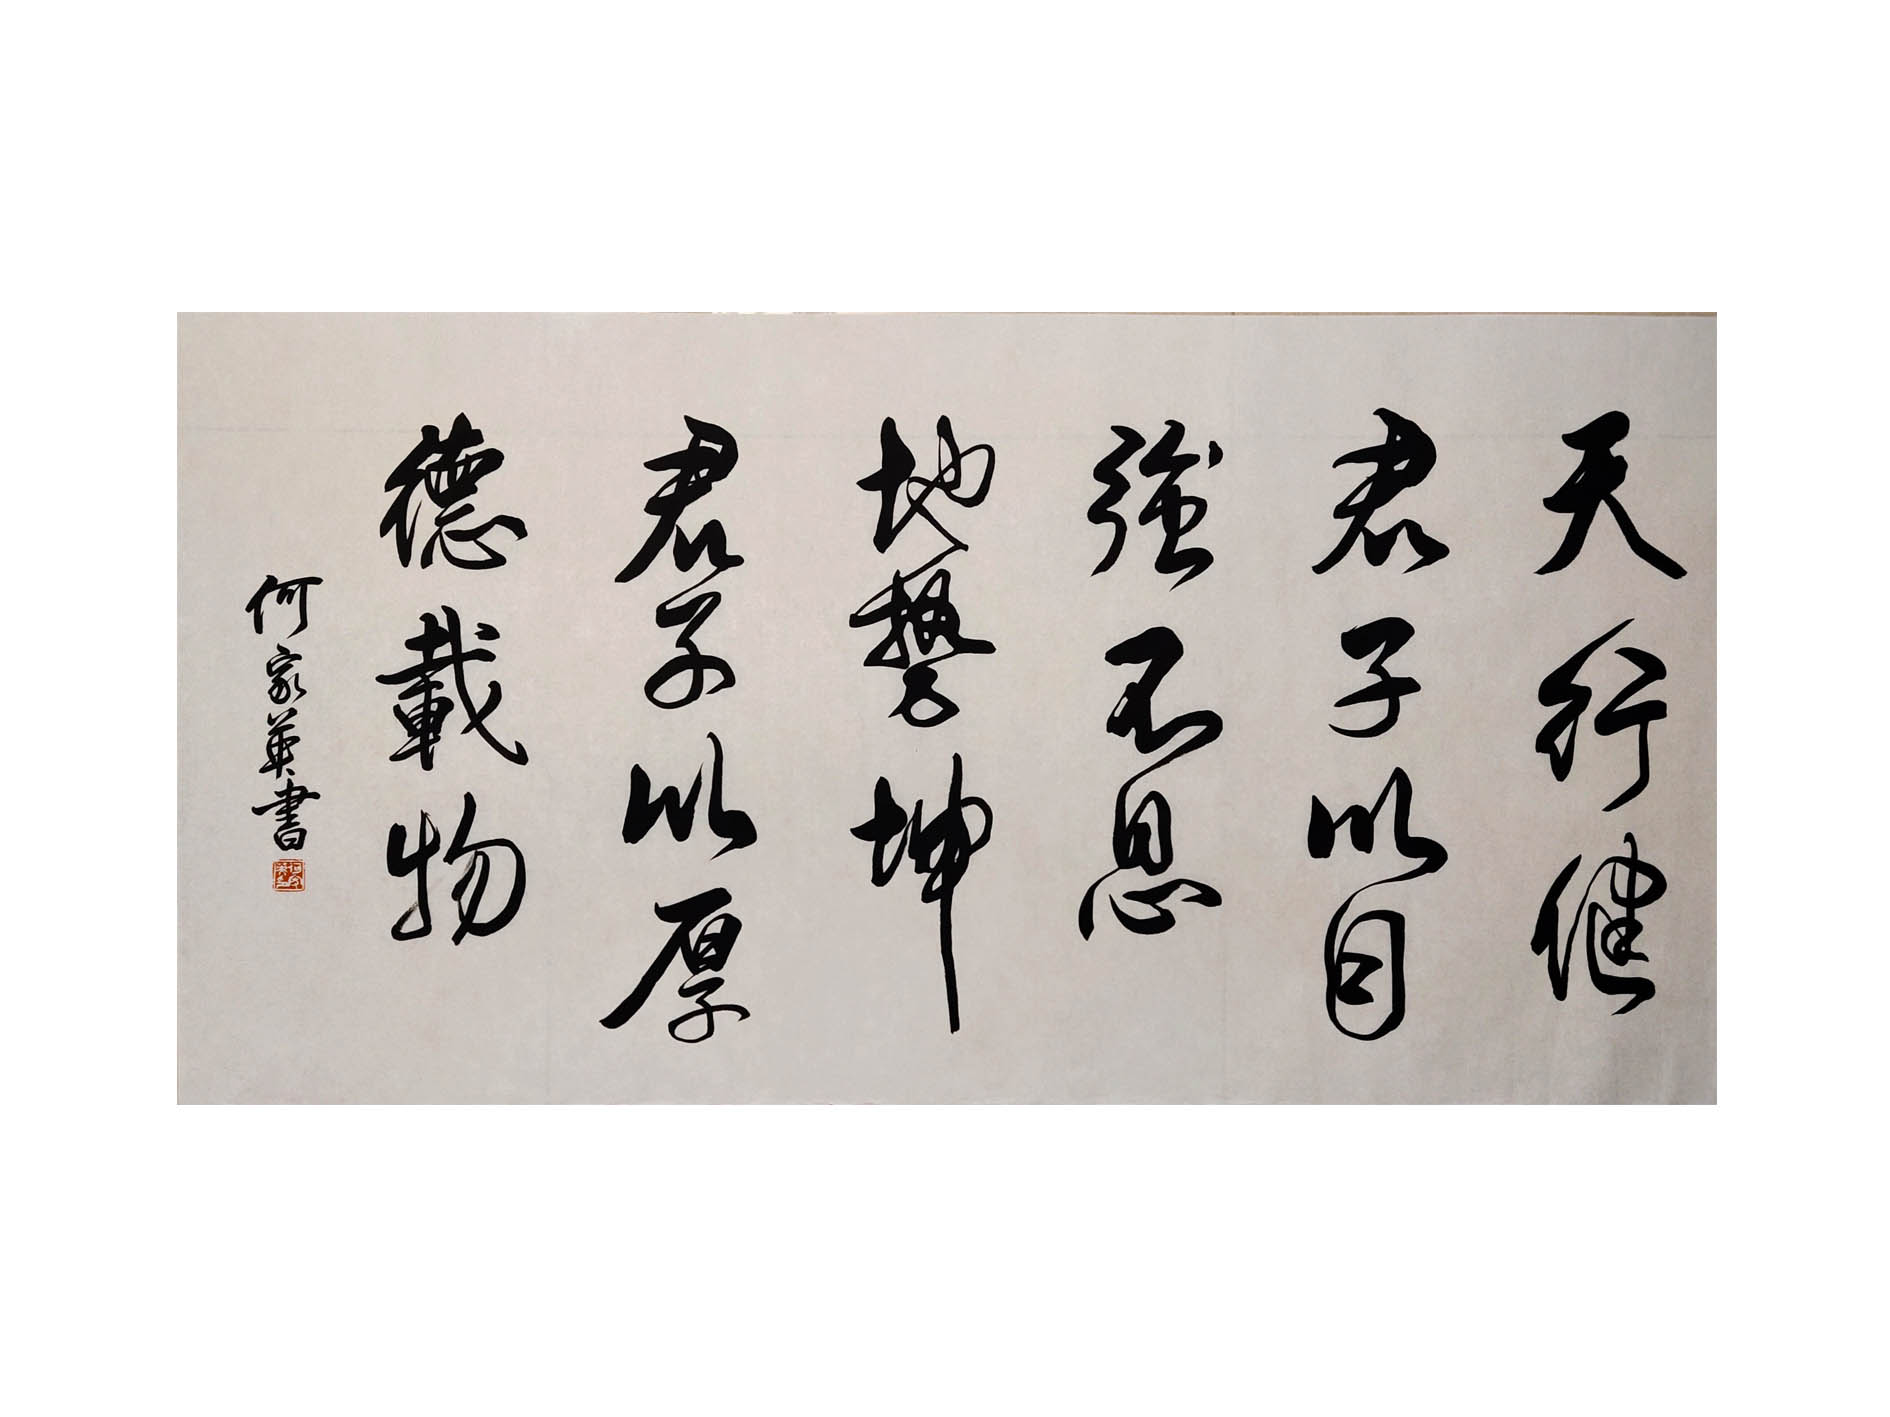 天行健
君子以自
強不息
地勢坤
君子以厚
德載物
何家英書